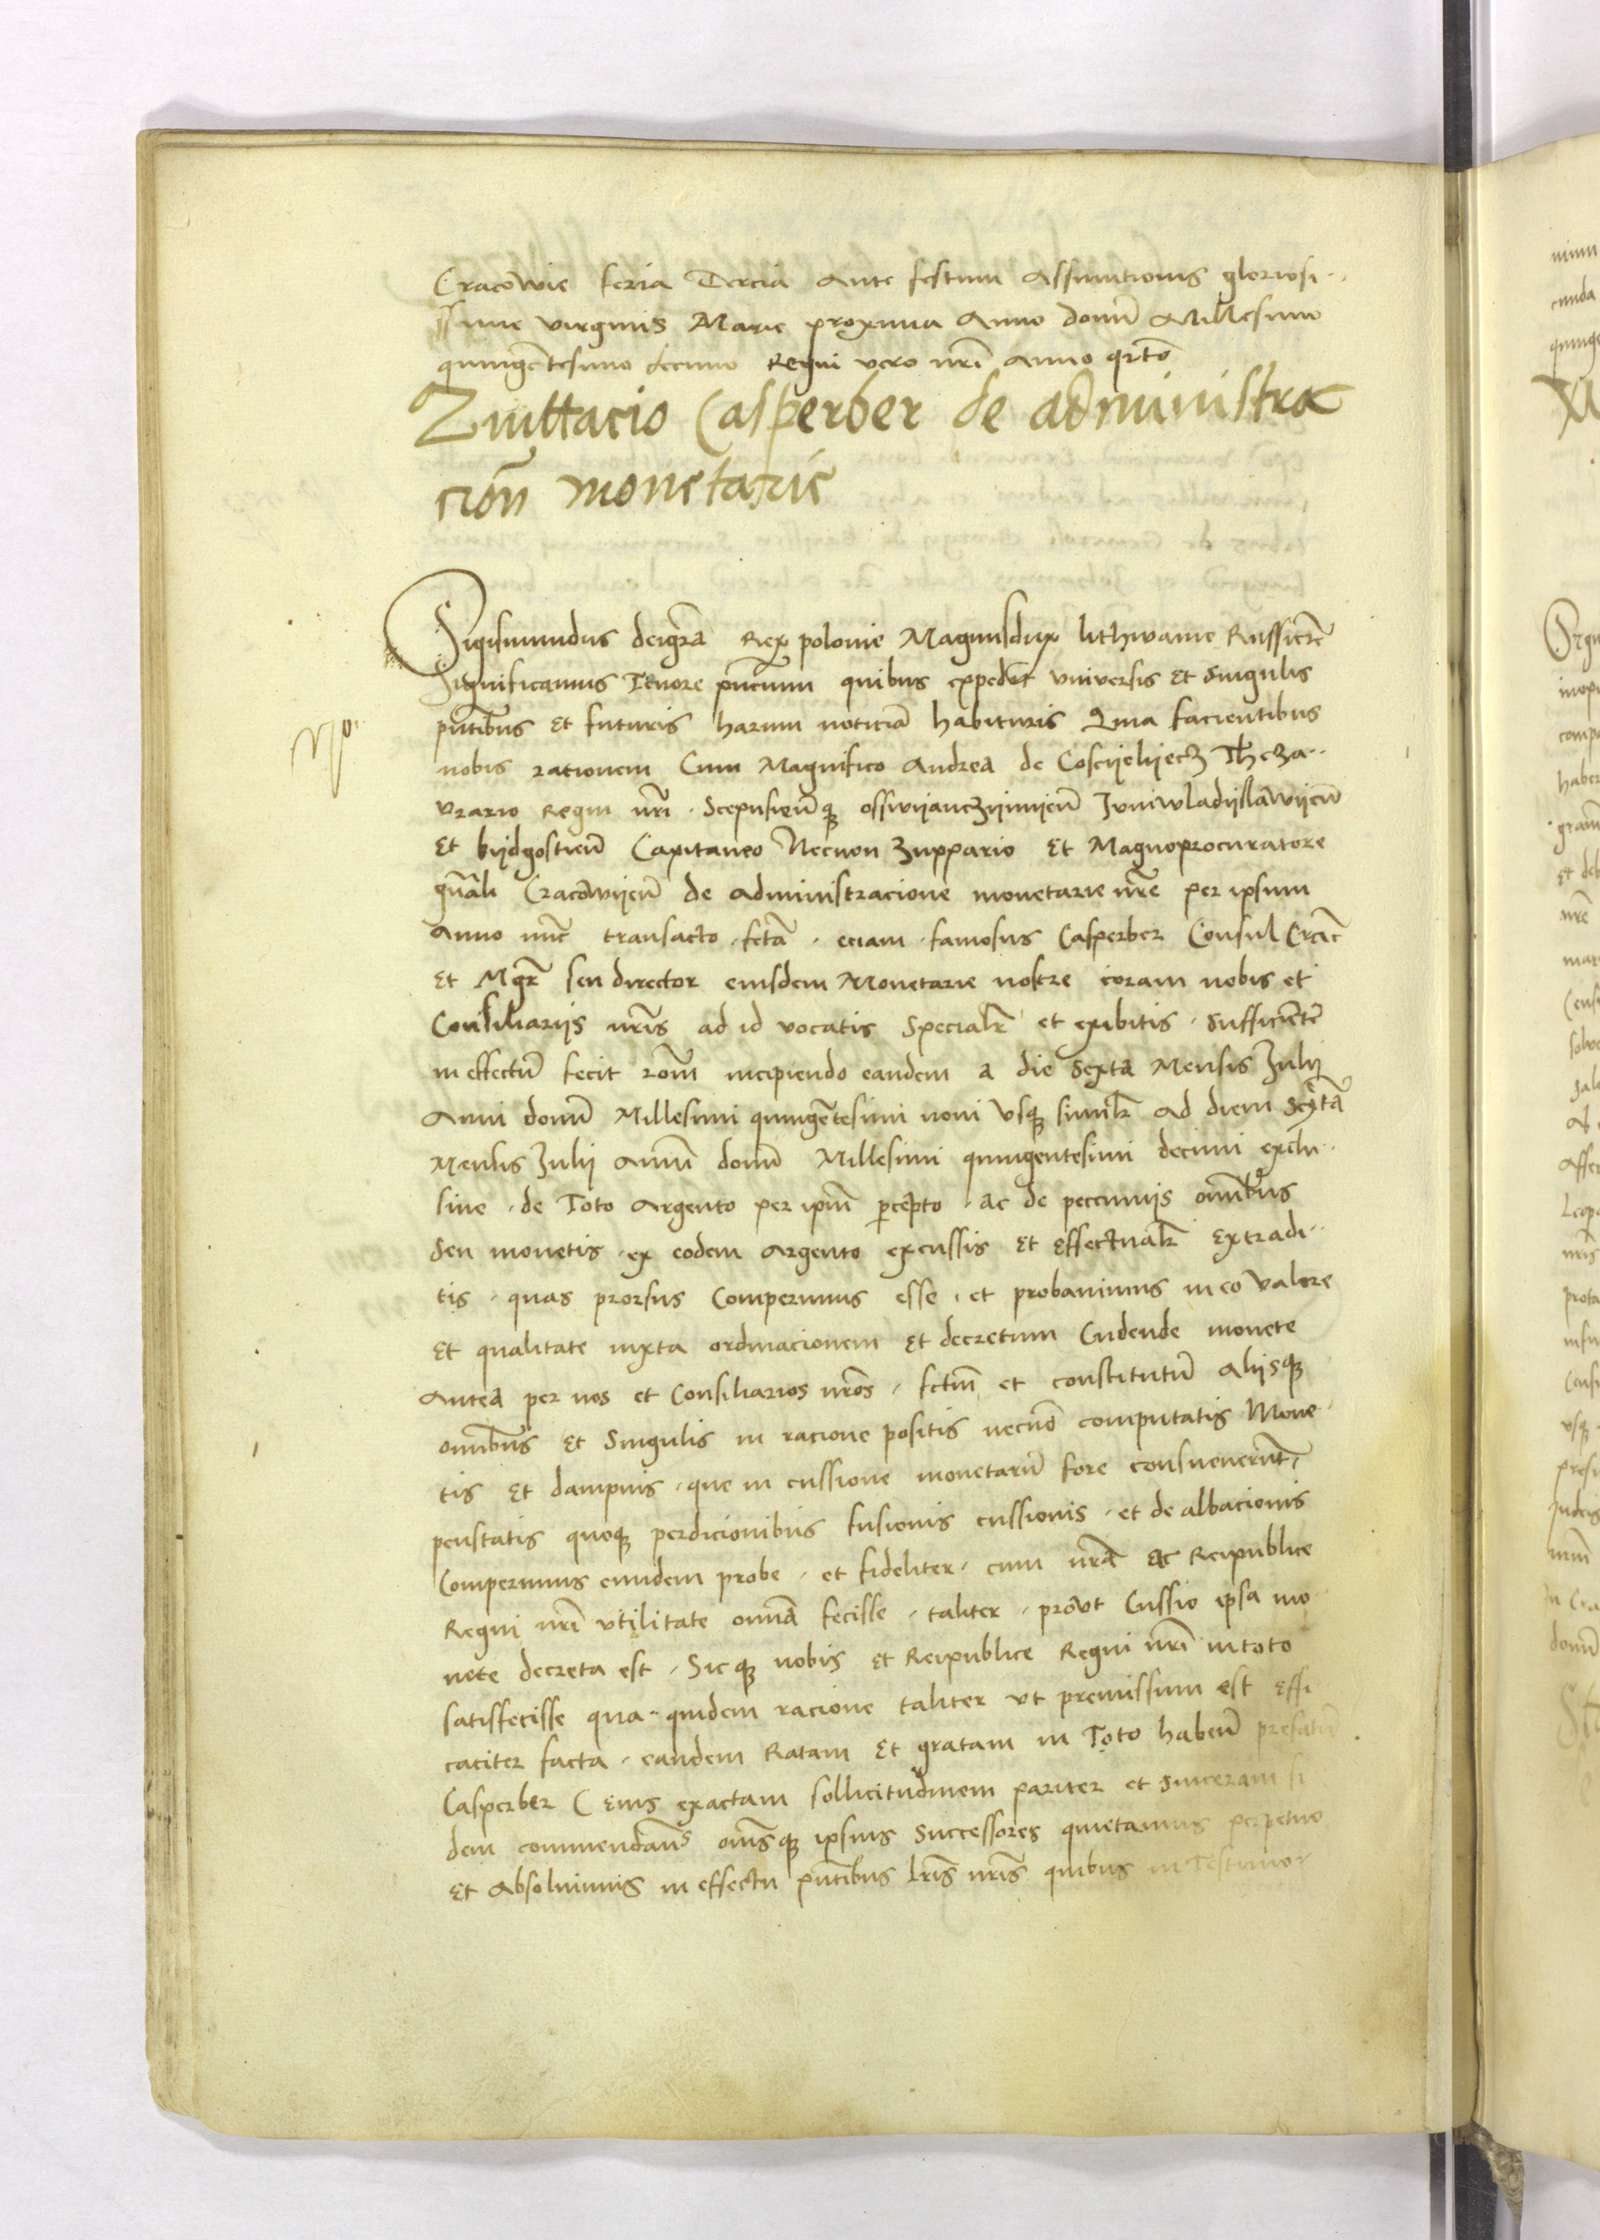 Cracowie feria Tercia Ante festum Assumtionis gloriosi..
ssime virginis Marie proxima Anno domī Millesimo
quingētesimo decimo Regni vero nrī Anno qrto
Quittacio Casperber de administra
cioñ monetarie
Sigismundus deigrā Rex polonie Magnusdux lithwanie Russie
Significamus Tenore pñcium quibus expedit universis Et Singulis
pñtibus Et futuris harum noticiā habituris Quia facientibus
nobis rationem Cum Magnifico Andrea de Coscijelijecz Theza..
urario Regni nrī . Scepusieñ q osswijanczijmijeñ Juniwladijslawijeñ
Et bijdgostieñ Capitaneo Necnon zuppario Et Magnoprocuratore
gñali Cracowijeñ de Administracione monetarie nrē per ipsum
Anno nūc transacto . fctā . eciam . famosus Casperber Consul Crac
Et Mgr̄ seu director eiusdem Monetarie nostre coram nobis et
Consiliariis nrīs ad id vocatis Specialr̄ et exibitis . Sufficiēter
in effectū fecit roñm incipiendo eandem a die Sexta Mensis Julij
Anni domī Millesimi quingētesimi noni Usq similr̄ Ad diem Sextā
Mensis Julij Anni domī Millesimi quingentesimi decimi exclu..
sive . de Toto Argento per ipm̄ pcepto . Ac de peccuniis omibus
Seu monetis . ex eodem Argento excussis Et Effectualr̄ Extradi..
tis . quas prorsus Comperimus esse . et probavimus in eo Valore
Et qualitate iuxta ordinacionem Et decretum Cudende monete
Antea per nos et Consiliarios nros . fctm̄ et constitutū Aliisq
omibus Et Singulis in racione positis necnō computatis Mone.
tis Et dampnis . que in cussione monetarū fore consueverūt.
penstatis quoq perdicionibus fusionis cussionis . et de albacionis
Comperimus eundem probe . et fideliter . cum nrā Ac Reipublice
Regni nrī Utilitate omnā fecisse . taliter . prout Cussio ipsa mo
nete decreta est . Sic q nobis Et Reipublice Regni nrī in toto
satisfecisse qua.. quidem racione taliter ut premissum est Effi
caciter facta . eandem Ratam Et gratam in Toto habeñ prefatū
Casperber ( Eius exactam sollicitudinem pariter et sinceram fi
dem commendans omsq ipsius Successores quietamus perpetuo
Et Absolvimus in effectu pñtibus lrīs nrīs quibus in Testimo.